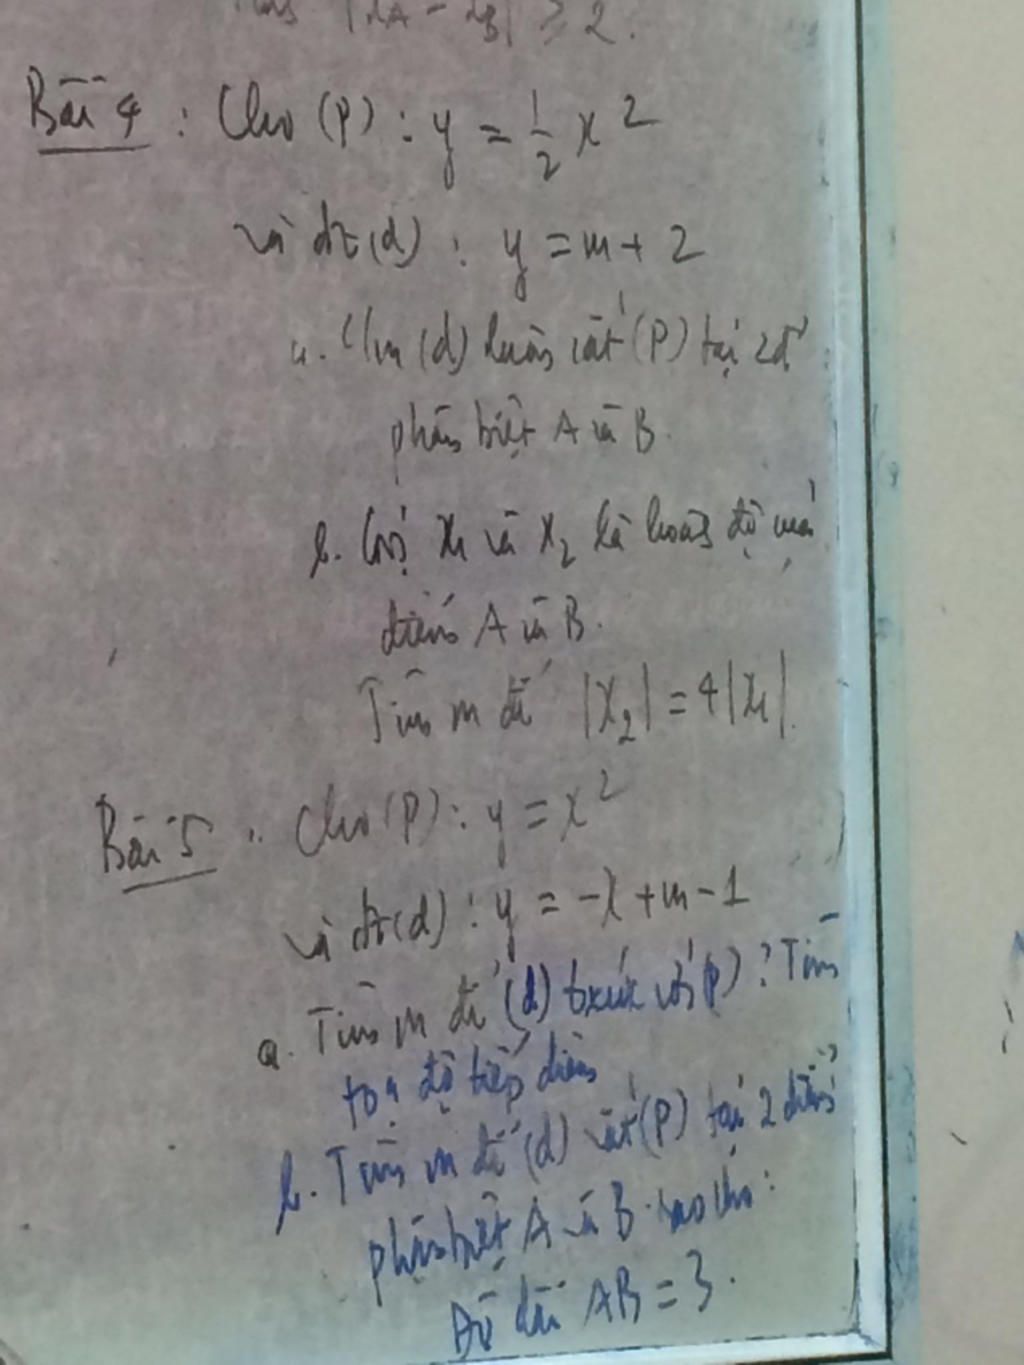 |xA - xB| ≥ 2.
Bài 4 : Cho (P) : y = 1/2 x²
và đt (d) : y = m + 2
a. C/m (d) luôn cắt (P) tại 2đ'
phân biệt A và B.
b. Gọi x₁ và x₂ là hoành độ của
điểm A và B.
Tìm m để |x₂| = 4|x₁|.
Bài 5 : Cho (P) : y = x²
và đt (d) : y = -x + m - 1
a. Tìm m để (d) txúc với (P) ? Tìm
toạ độ tiếp điểm
b. Tìm m để (d) cắt (P) tại 2 điểm
phân biệt A và B sao cho :
Độ dài AB = 3.